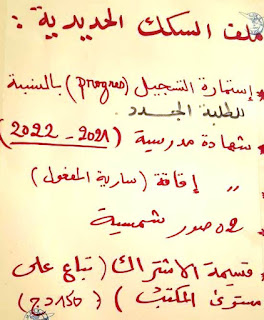 ملف السكك الحديدية :
* إستمارة التسجيل (progres) بالنسبة
للطلبة الجدد.
* شهادة مدرسية (2021 - 2022)
* " إقامة (سارية المفعول)
* 02 صور شمسية
* قسيمة الاشتراك (تباع على
مستوى المكتب) (150 دج)